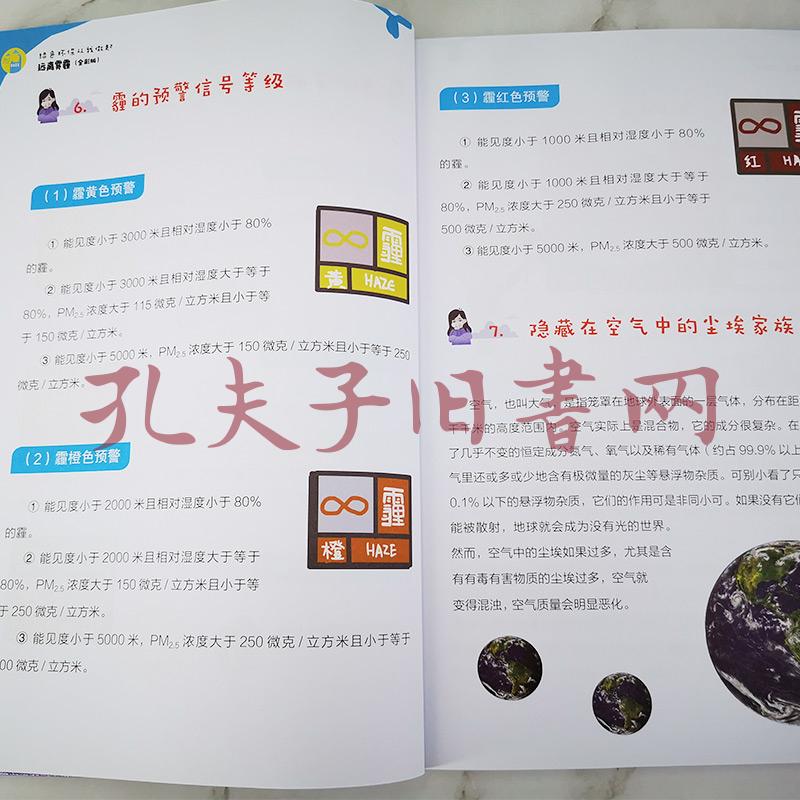 绿色环保从我做起
远离雾霾（全彩版）
6. 霾的预警信号等级
（1）霾黄色预警
① 能见度小于 3000 米且相对湿度小于 80%
的霾。
② 能见度小于 3000 米且相对湿度大于等于
80%，PM2.5 浓度大于 115 微克 / 立方米且小于等
于 150 微克 / 立方米。
③ 能见度小于 5000 米，PM2.5 浓度大于 150 微克 / 立方米且小于等于 250
微克 / 立方米。
霾
黄 HAZE
（2）霾橙色预警
① 能见度小于 2000 米且相对湿度小于 80%
的霾。
② 能见度小于 2000 米且相对湿度大于等于
80%，PM2.5 浓度大于 150 微克 / 立方米且小于等
于 250 微克 / 立方米。
③ 能见度小于 5000 米，PM2.5 浓度大于 250 微克 / 立方米且小于等于
00 微克 / 立方米。
霾
橙 HAZE
（3）霾红色预警
① 能见度小于 1000 米且相对湿度小于 80%
的霾。
② 能见度小于 1000 米且相对湿度大于等于
80%，PM2.5 浓度大于 250 微克 / 立方米且小于等于
500 微克 / 立方米。
③ 能见度小于 5000 米，PM2.5 浓度大于 500 微克 / 立方米。
红 HA
7. 隐藏在空气中的尘埃家族
空气，也叫大气，是指笼罩在地球外表面的一层气体，分布在距
千米的高度范围内。空气实际上是混合物，它的成分很复杂。在
了几乎不变的恒定成分氮气、氧气以及稀有气体（约占 99.9% 以上
气里还或多或少地含有极微量的灰尘等悬浮物杂质。可别小看了只
0.1% 以下的悬浮物杂质，它们的作用可是非同小可。如果没有它们
能被散射，地球就会成为没有光的世界。
然而，空气中的尘埃如果过多，尤其是含
有有毒有害物质的尘埃过多，空气就
变得混浊，空气质量会明显恶化。
孔夫子旧书网